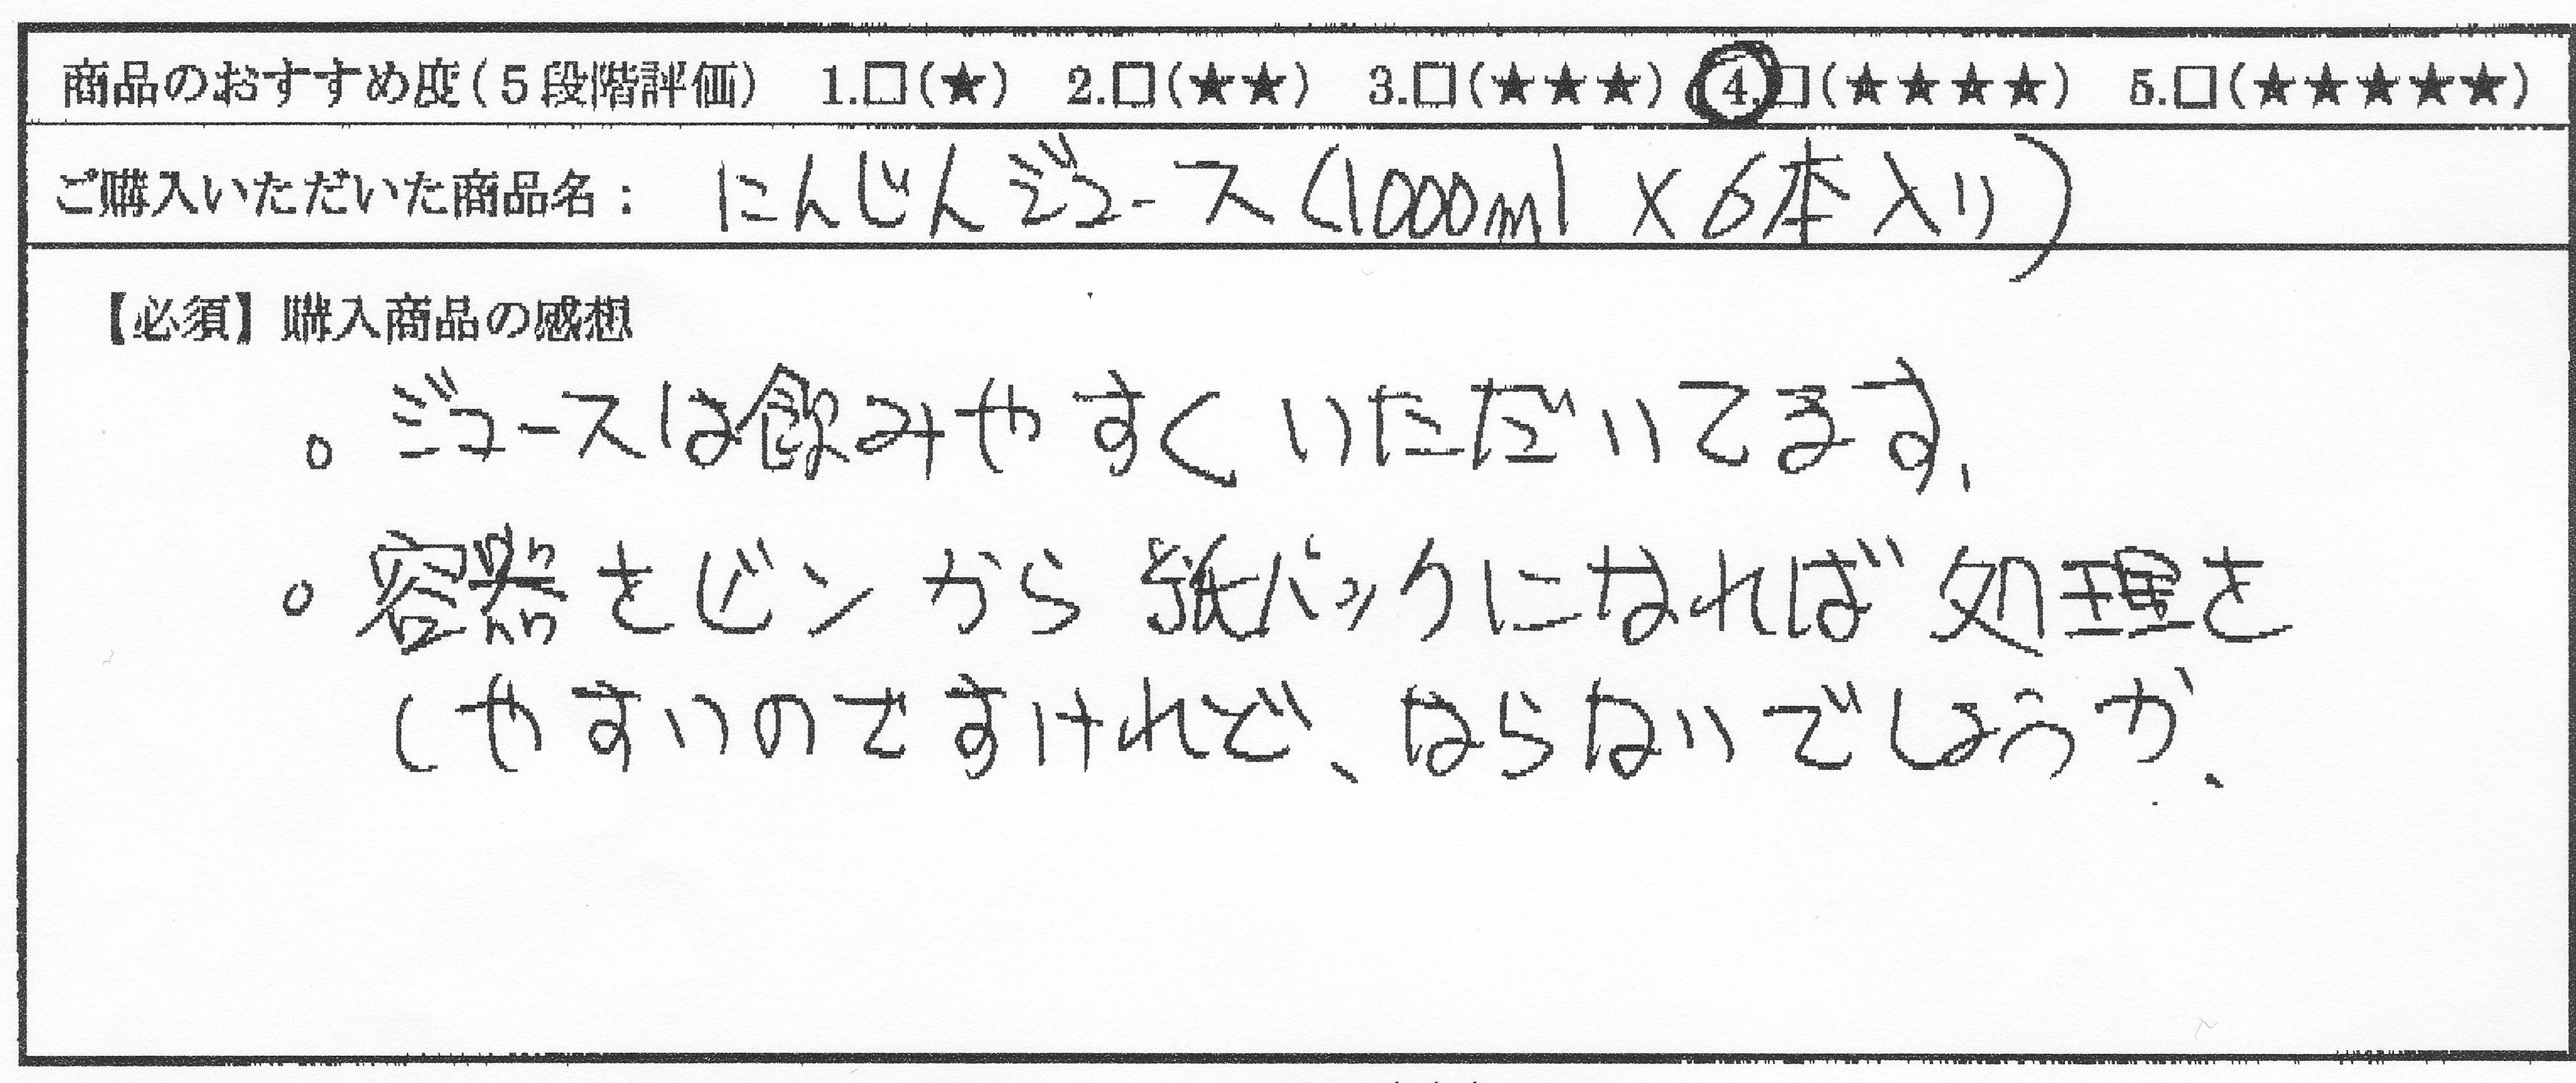 商品のおすすめ度(5段階評価) 1.□(★) 2.□(★★) 3.□(★★★) 4.□(★★★★) 5.□(★★★★★)
ご購入いただいた商品名: にんじんジュース(1000ml×6本入り)
【必須】購入商品の感想
。ジュースは飲みやすくいただいてます、
。容器をビンから紙パックになれば処理を
しやすいのですけれど、ならないでしょうか、